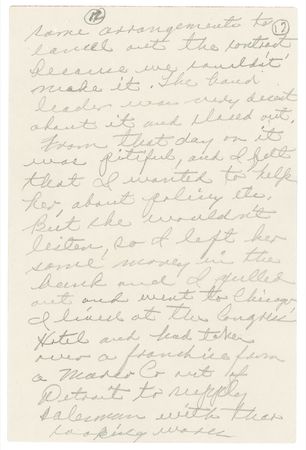 12 17
some arrangements to
cancel out the contract
because we couldn't
make it. The band
leader was very decent
about it and closed out.
From that day on it
was pitiful, and I felt
that I wanted to help
her, about policy etc.
But she wouldn't
listen, so I left her
some money in the
bank and I pulled
out and went to Chicago,
I lived at the Congress
Hotel and had taken
over a franchise from
a Co out of
Detroit to supply
salesman with their
cooking wares